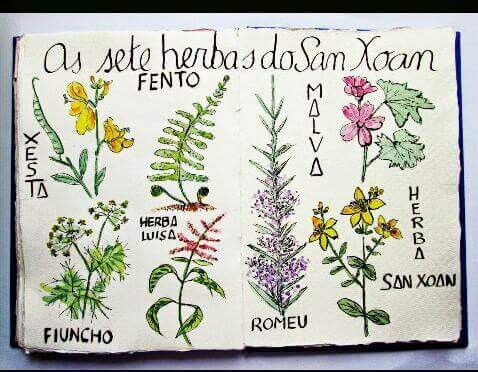 As sete herbas do San Xoan
XESTA
FENTO
MALVA
FIUNCHO
HERBA
LUISA
ROMEU
HERBA
SAN XOAN